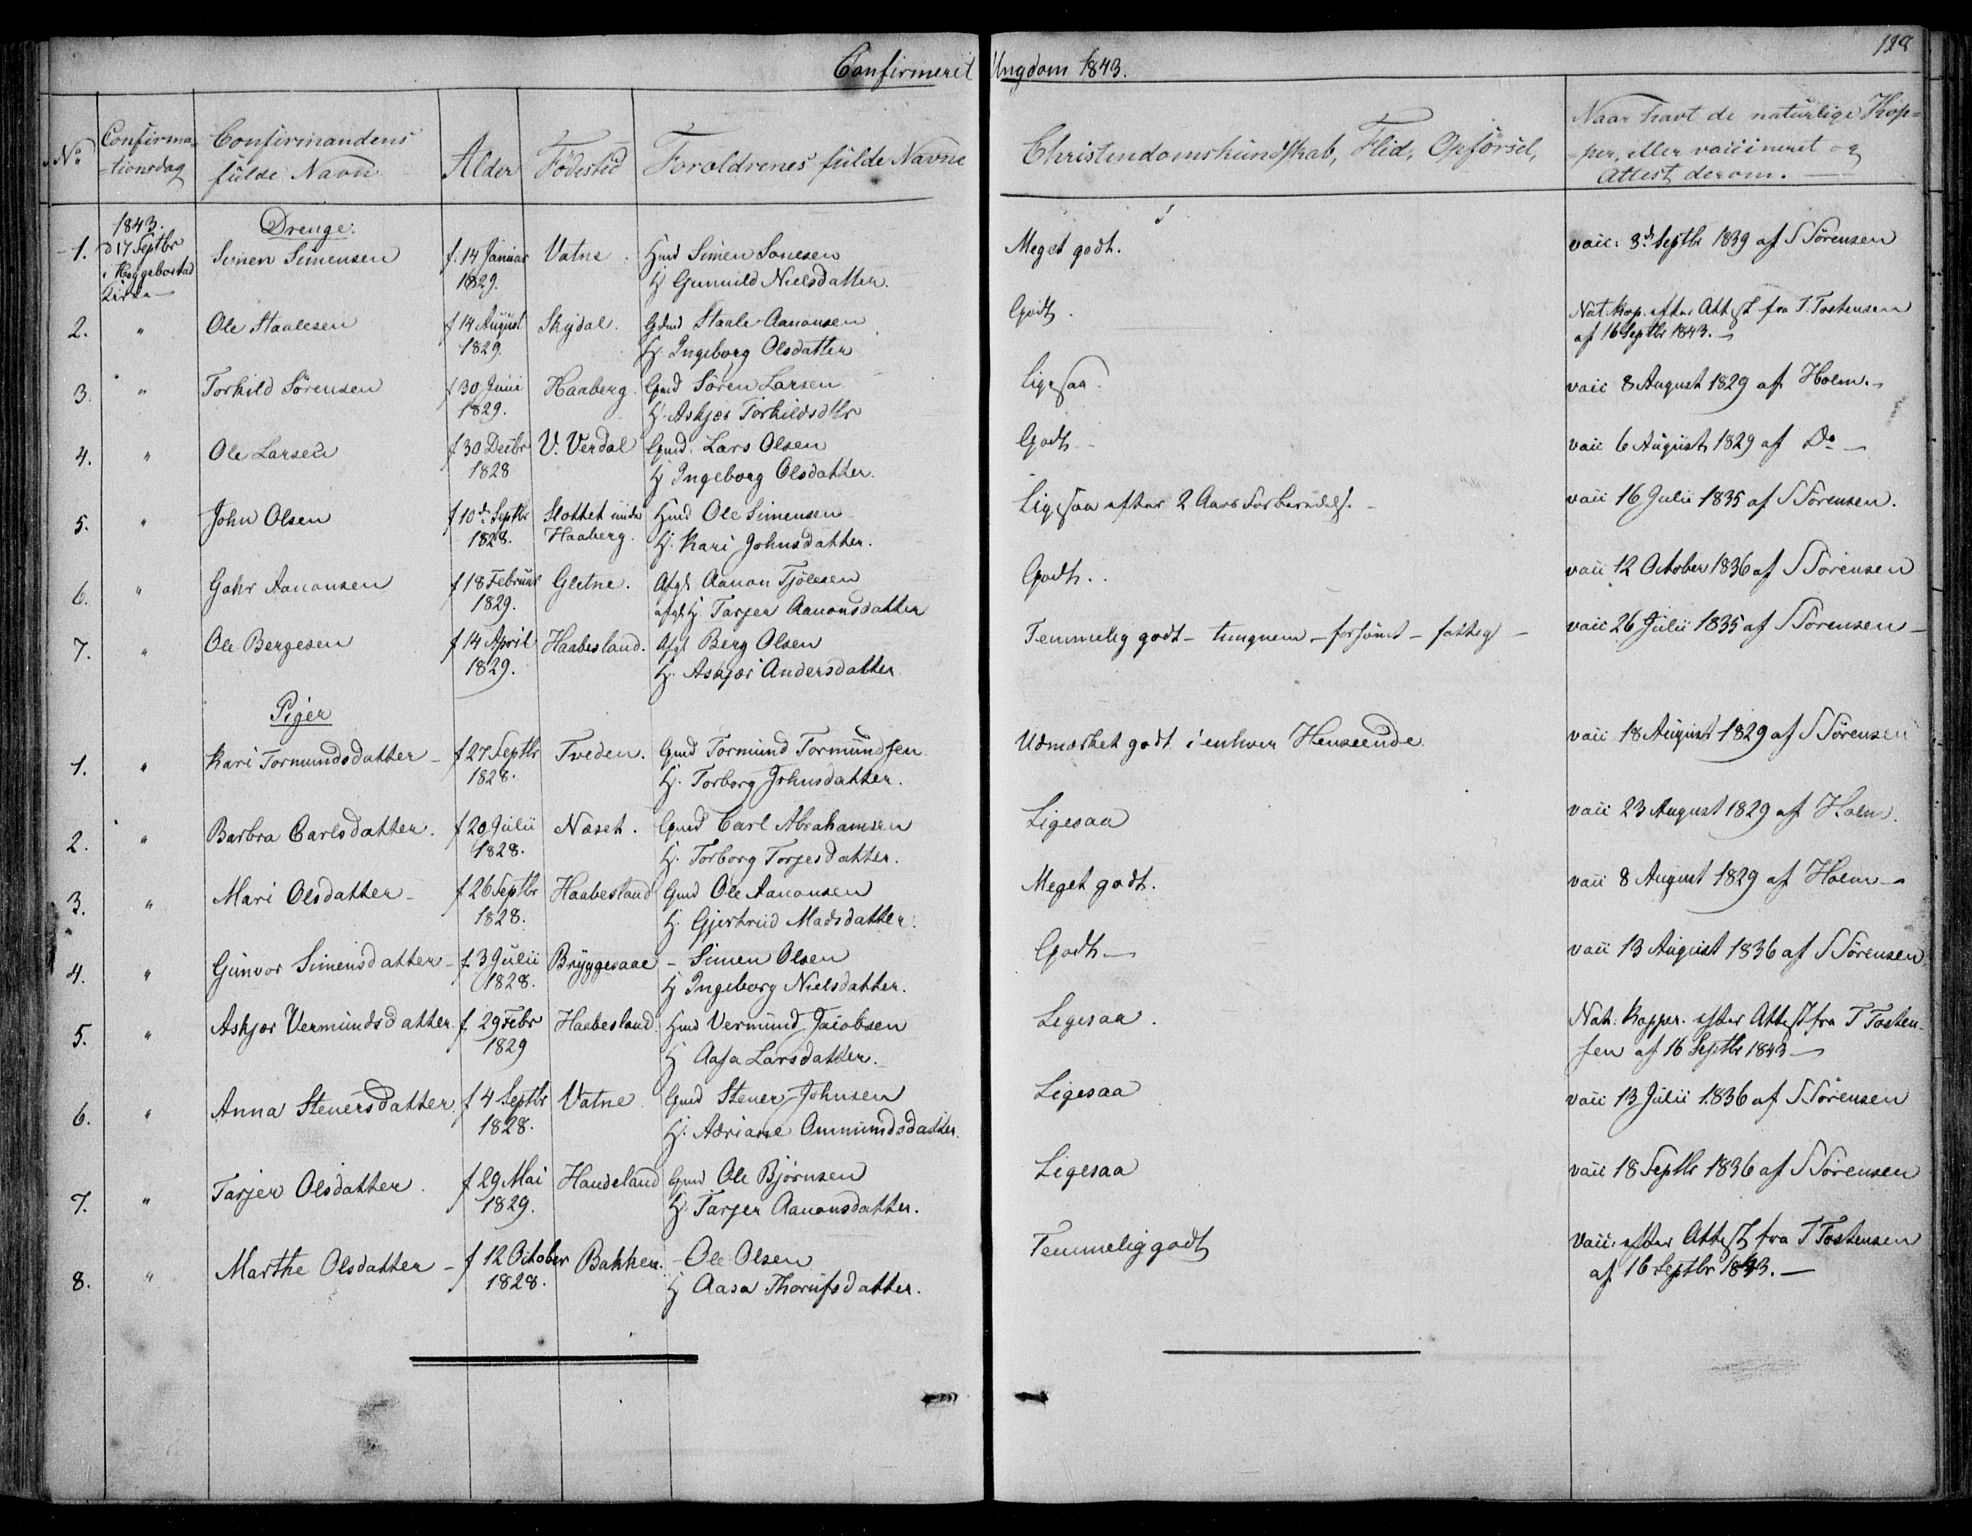 Confirmeret Ungdom 1843.
128
No
Confirma-
-tionsdag
Confirmandens
fulde Navn
Alder
Födested
Foroldrenes fulde Navne
Christendomskundskab, Flid, Opförsel,
Naar havt de naturlige Kop-
-per, eller vaccineret og
Attest derom.
1843.
d 17 Septbr
i Heggebostad
Kirke
Drenge:
1. Simen Simensen f. 14 Januar Vatne. Hmd Simen Sonesen Meget godt. vacc: 3d Septbr 1839 af S Sörensen
1829. H Gunnild Nielsdatter.
2. " Ole Staalesen f 14 August Skydal. Gdmd Staale Aanonsen Godt. Nat. kop. efter Attest fra T. Tostensen
1829. H. Ingeborg Olsdatter af 16 Septbr 1843.
3. " Torkild Sörensen f 30 Juni Haaberg. Gmd Sören Larsen ligesaa. vacc 8 August 1829 af Holm.
1829. H. Askjer Torkildsdtr
4. " Ole Larsen f 30 Decbr V. Verdal Gmd. Lars Olsen Godt vacc 6 August 1829 af Do
1828 H Ingeborg Olsdatter.
5. " John Olsen f 10d Septbr Slottet under Hmd Ole Simensen Ligesaa efter 2 Aars Forberedelse. vacc 16 Julii 1835 af S Sörensen.
1828. Haaberg. H. Kari Johnsdatter.
6. " Gahr Aanonsen f 18 Februar Gletne. Afgl Aanon Tjölesen Godt. vacc 12 October 1836 af S Sörensen
1829. afgl. H Tarjer Aanonsdatter
7. " Ole Bergesen f 14 April Haabesland. Afgl Berg Olsen Temmelig godt - tungnem - forsömt - fattig - vacc 26 Julii 1835 af S Sörensen
1829. H. Askjær Andersdatter
Piger
1. " Kari Tormundsdatter f 27 Septbr Tveden. Gmd Tormund Tormundsen Udmærket godt i enhver Henseende. vacc 18 August 1829 af S Sörensen
1828. H. Torborg Johnsdatter.
2. " Barbra Carlsdatter. f 20 Julii Næset. Gmd Carl Abrahamsen Ligesaa vacc 23 August 1829 af Holm.
1828. H. Torborg Torjesdatter.
3. " Mari Olsdatter f 26 Septbr Haabesland Gmd Ole Aanonsen Meget godt. vacc 8 August 1829 af Holm
1828. H. Gjertrud Madsdatter.
4. " Gunvor Simensdatter f. 3 Julii Bryggesaae - Simen Olsen Godt vacc 13 August 1836 af S Sörensen
1828. H Ingeborg Nielsdatter.
5. " Askjær Vermundsdatter. f. 29 Febr Haabesland. Hmd Vermund Jacobsen Ligesaa. Nat: Kopper. efter Attest fra T Tosten-
1829 H Aasa Larsdatter. sen af 16 Septbr 1843
6. " Anna Stenersdatter. f 4 Septbr Vatne Gmd Stener Johnsen Ligesaa vacc 13 Julii 1836 af S Sörensen
1828. H. Adriane Ommundsdatter.
7. " Tarjer Olsdatter. f 29 Mai Haudeland Gmd Ole Björnsen Ligesaa vacc 18 Septbr 1836 af S Sörensen
1829. H. Tarjer Aanonsdatter.
8. " Marthe Olsdatter f 12 October Bakken. - Ole Olsen Temmelig godt vacc: efter Attest fra T Tostensen
1828. H Aasa Thorufsdatter. af 16 Septbr 1843.